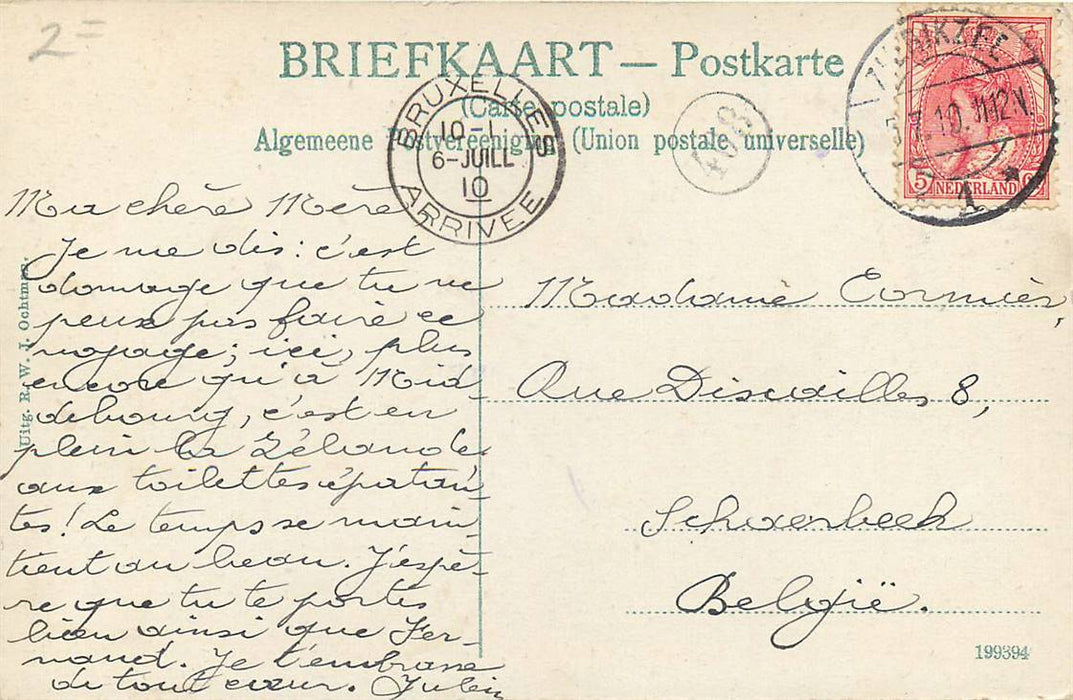 2=
BRIEFKAART — Postkarte
(Carte postale)
Algemeene Postvereeniging (Union postale universelle)
BRUXELLES
10-1
6-JUILL
10
ARRIVEE
408
10. 11 12 V.
A *
5
NEDERLAND
Uitg. R. W. J. Ochtman.
Ma chère Mère
Je me dis: c'est
domage que tu ne
peux pas faire ce
voyage; ici, plus
encore qu'à Mid-
delbourg, c'est en
plein la Zélande
aux toilettes épatan-
tes! Le temps se main-
tient au beau. J'espè-
re que tu te portes
bien ainsi que Fer-
nand. Je t'embrasse
de tout cœur. Julien
Madame Cornier,
Rue Discailles 8,
Schaerbeek
België.
199394